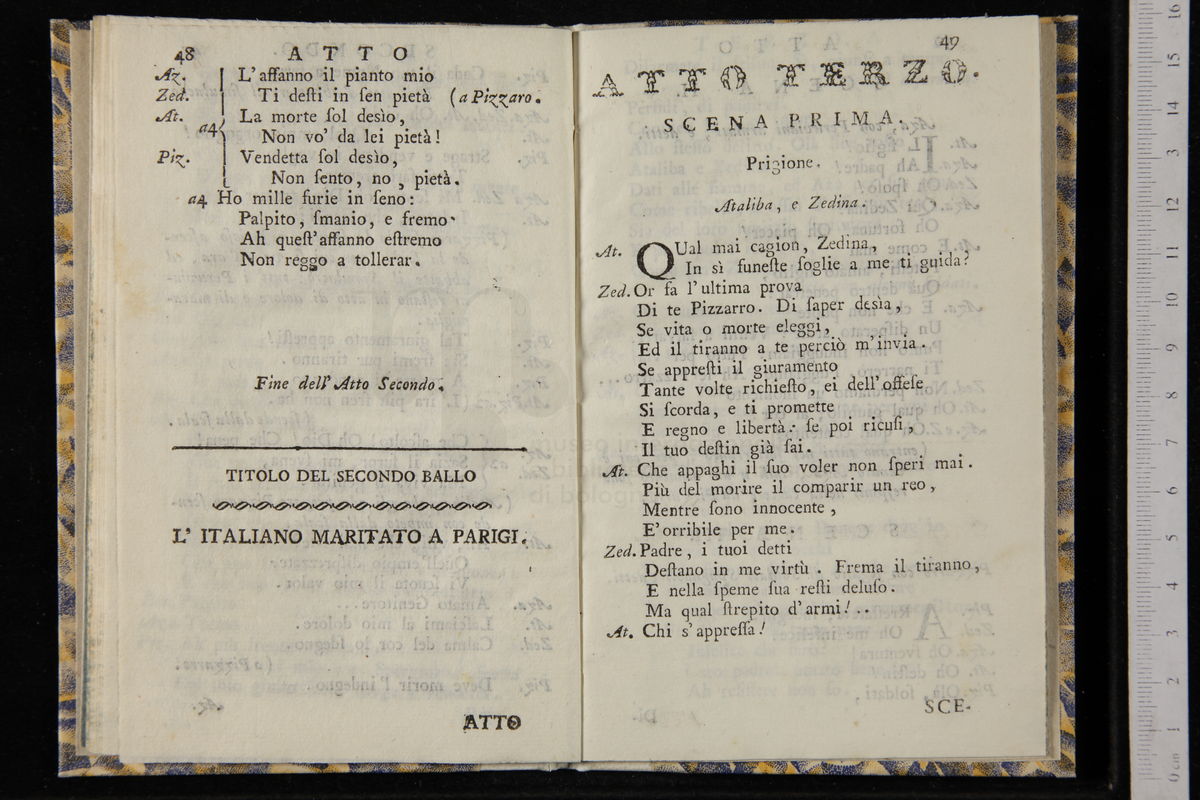 48 ATTO
Az. L'affanno il pianto mio
Zed. Ti deſti in ſen pietà (a Pizzaro.
At. La morte ſol desìo,
a4 Non vo' da lei pietà!
Piz. Vendetta ſol desìo,
Non ſento, no, pietà.
a4 Ho mille furie in ſeno:
Palpito, ſmanio, e fremo
Ah queſt'affanno eſtremo
Non reggo a tollerar.
Fine dell' Atto Secondo.
TITOLO DEL SECONDO BALLO
L' ITALIANO MARITATO A PARIGI.
ATTO
49
ATTO TERZO.
SCENA PRIMA.
Prigione.
Ataliba, e Zedina.
At. QUal mai cagion, Zedina,
In sì funeſte ſoglie a me ti guida?
Zed. Or fa l'ultima prova
Di te Pizzarro. Di ſaper desìa,
Se vita o morte eleggi,
Ed il tiranno a te perciò m'invia.
Se appreſti il giuramento
Tante volte richieſto, ei dell'offeſe
Si ſcorda, e ti promette
E regno e libertà: ſe poi ricuſi,
Il tuo deſtin già ſai.
At. Che appaghi il ſuo voler non ſperi mai.
Più del morire il comparir un reo,
Mentre ſono innocente,
E' orribile per me.
Zed. Padre, i tuoi detti
Deſtano in me virtù. Frema il tiranno,
E nella ſpeme ſua reſti deluſo.
Ma qual ſtrepito d'armi!..
At. Chi s'appreſſa!
SCE-
museo in
bibli
di bologn
0 cm 1 2 3 4 5 6 7 8 9 10 11 12 13 14 15 16